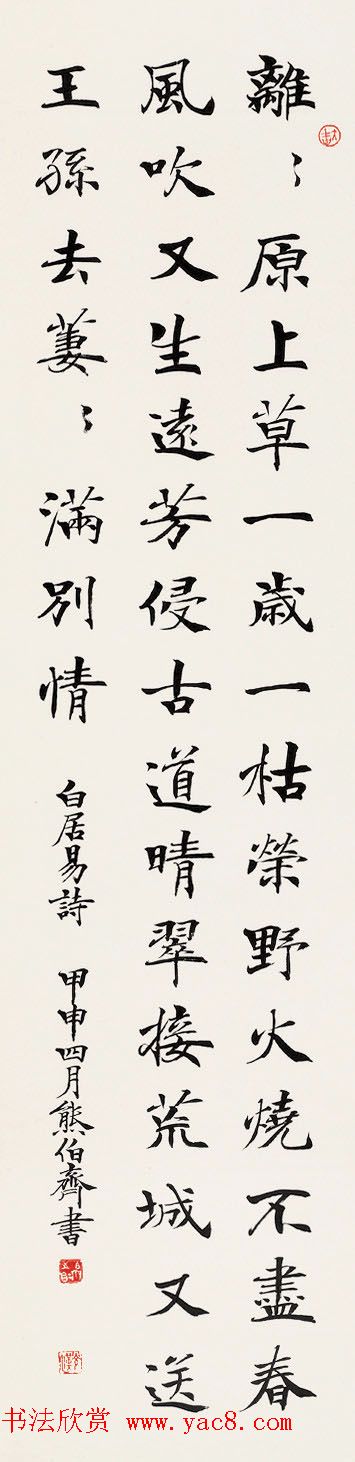 離〻原上草一歲一枯榮野火燒不盡春
風吹又生遠芳侵古道晴翠接荒城又送
王孫去萋〻滿別情
白居易詩 甲申四月熊伯齊書
书法欣赏 www.yac8.com